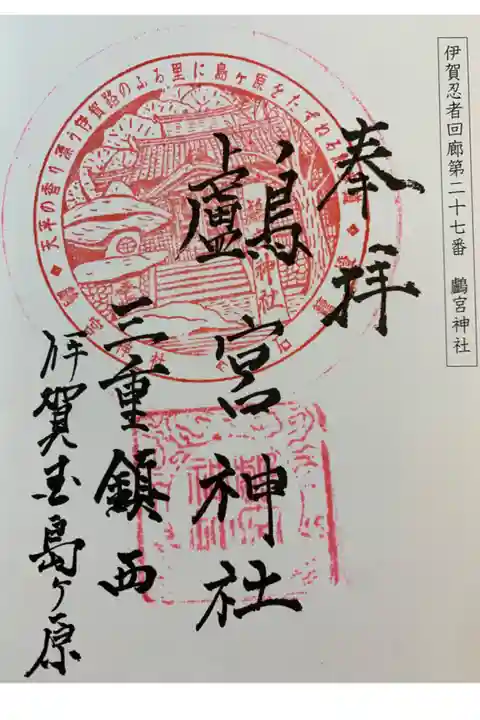 伊賀忍者回廊第二十七番　鸕宮神社
奉拝
鸕宮神社
三重鎮西
伊賀 島ヶ原
天平の香り漂う伊賀路のふる里に島ヶ原をたずねる
神社